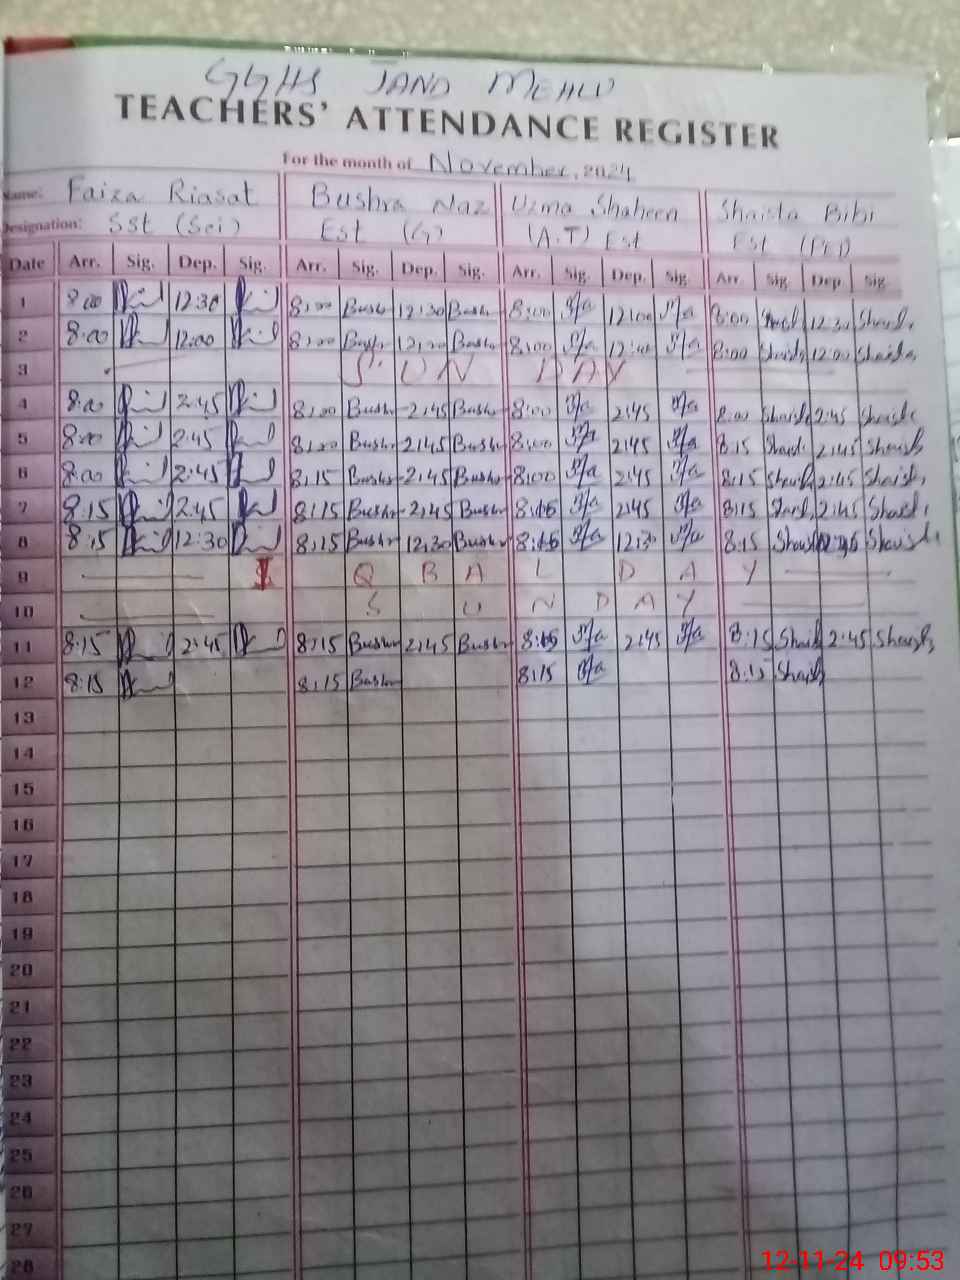 GGHS JAND MEHLU
TEACHERS' ATTENDANCE REGISTER
For the month of November, 2024
Name: Faiza Riasat Bushra Naz Uzma Shaheen Shaista Bibi
Designation: Sst (Sci) Est (G) (A.T) Est Est (PET)
Date Arr. Sig. Dep. Sig. Arr. Sig. Dep. Sig. Arr. Sig. Dep. Sig. Arr. Sig. Dep Sig.
1 8:00 12:30 8:00 Bushr 12:30 Bushr 8:00 12:00 8:00 12:30
2 8:00 12:00 8:00 Bushr 12:00 Bushr 8:00 12:00 8:00 12:00
3 SUNDAY
4 8:00 2:45 8:00 Bushr 2:45 Bushr 8:00 2:45 8:00 2:45
5 8:00 2:45 8:00 Bushr 2:45 Bushr 8:00 2:45 8:15 2:45
6 8:00 2:45 8:15 Bushr 2:45 Bushr 8:00 2:45 8:15 2:45
7 8:15 2:45 8:15 Bushr 2:45 Bushr 8:15 2:45 8:15 2:45
8 8:15 12:30 8:15 Bushr 12:30 Bushr 8:15 12:30 8:15
9 IQBAL DAY
10 SUNDAY
11 8:15 2:45 8:15 Bushr 2:45 Bushr 8:15 2:45 8:15 2:45
12 8:15 8:15 Bushr 8:15 8:15
13
14
15
16
17
18
19
20
21
22
23
24
25
26
27
28
12-11-24 09:53